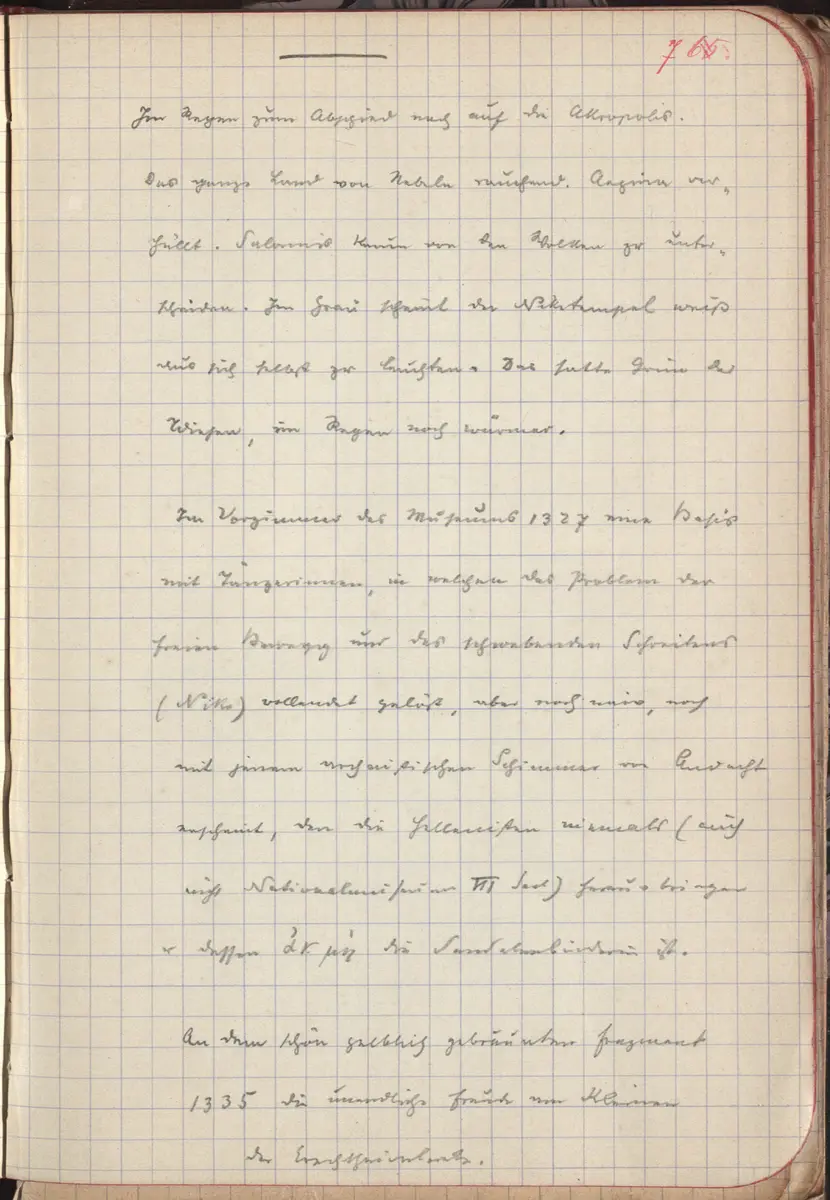 766.
Im Regen zum Abschied noch auf die Akropolis.
Das ganze Land von Nebeln rauchend. Aegina ver-
hüllt. Salamis kaum von den Wolken zu unter-
scheiden. Im Grau scheint der Niketempel weiß
aus sich selbst zu leuchten. Das satte Grün der
Wiesen, im Regen noch wärmer.
Im Vorzimmer des Museums 1327 eine Basis
mit Tänzerinnen, in welchen das Problem der
freien Bewegg und des schwebenden Schreitens
(Nike) vollendet gelöst, aber noch naiv, noch
mit jenem archaistischen Schimmer von Andacht
erscheint, den die Hellenisten niemals (auch
nicht Nationalmuseum III Saal) herausbringen
u dessen ἀκμή die Sandalenbinderin ist.
An dem schön gelblich gebräunten Fragment
1335 die unendliche Freude am Kleinen
der